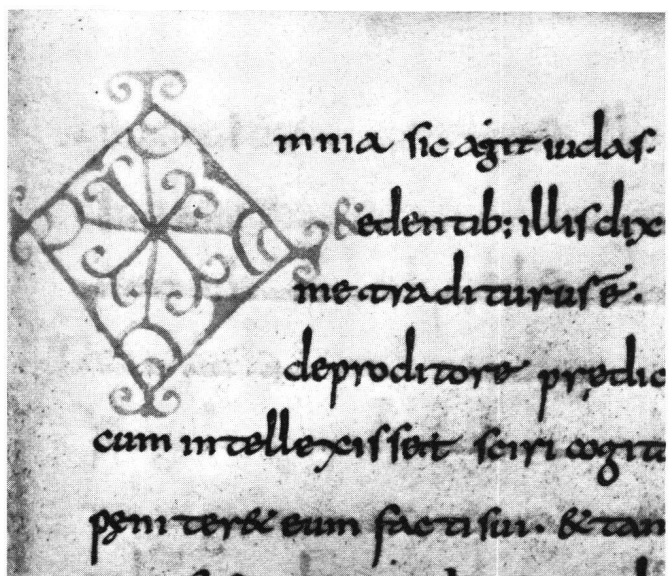 Omnia sic agit iudas.
& edentib; illis dix
me traditurus ē.
de proditore predic
cum intellexisset sciri cogita
penitere& eum facti sui. & tam